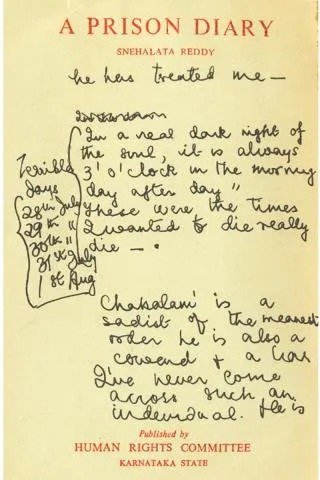 A PRISON DIARY
SNEHALATA REDDY
he has treated me —
"In a real dark night of
the soul, it is always
3' o'clock in the morning
day after day"
These were the times
I wanted to die really
die — .
Terrible
days
28th July
29th "
30th "
31st July
1st Aug
Chakalam' is a
sadist of the meanest
order he is also a
coward + a liar
I've never come
across such an
individual. He is
Published by
HUMAN RIGHTS COMMITTEE
KARNATAKA STATE